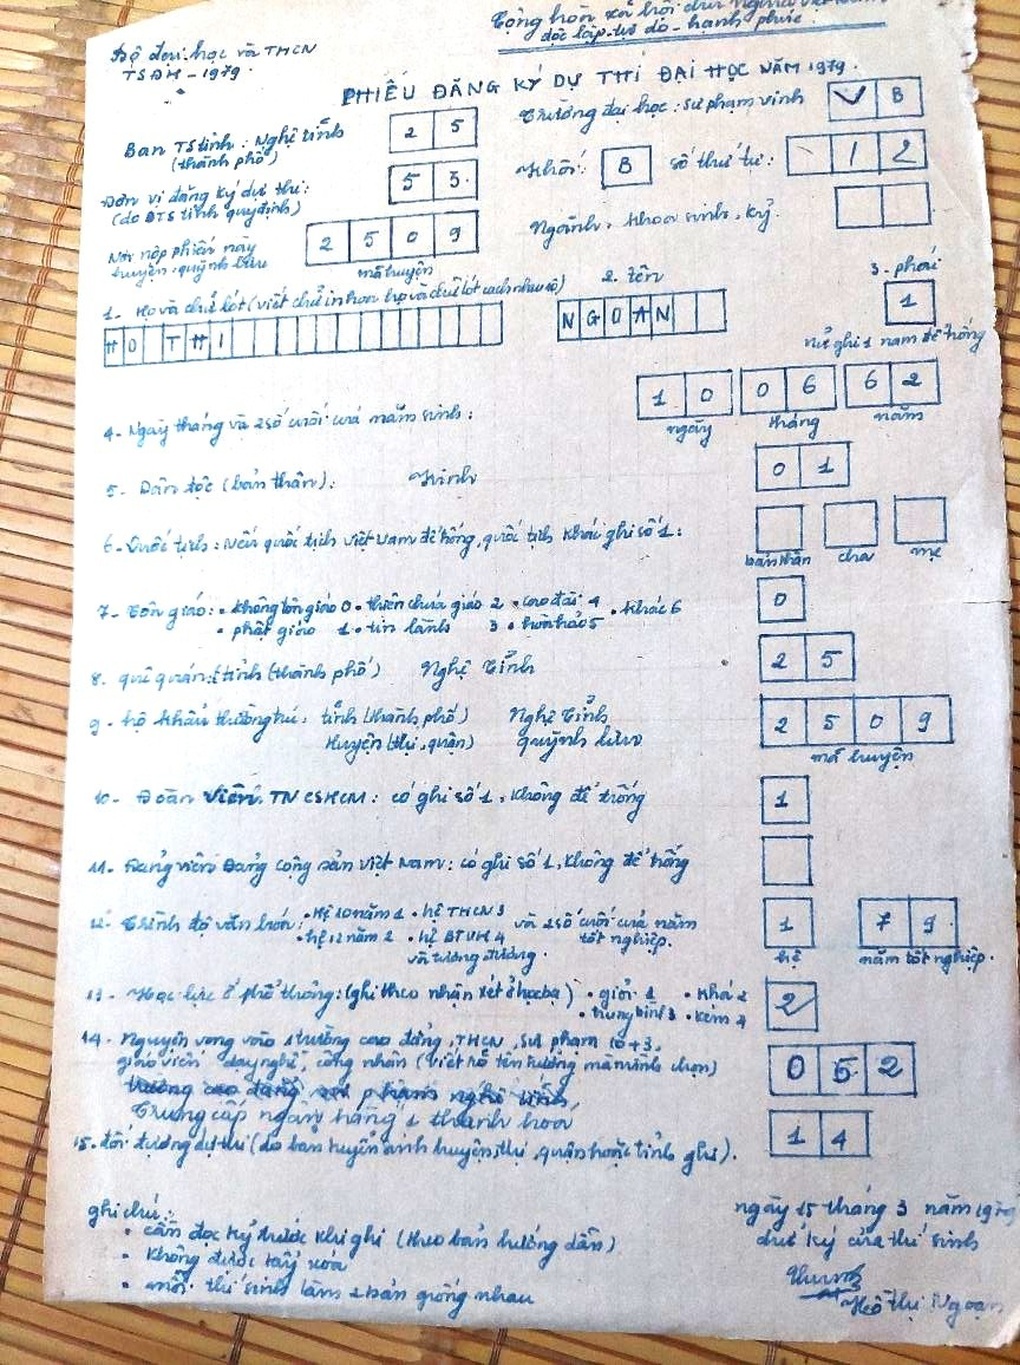 Cộng hòa xã hội chủ nghĩa việt nam
độc lập-tự do-hạnh phúc.
Bộ đại học và THCN
TSĐH - 1979.
PHIẾU ĐĂNG KÝ DỰ THI ĐẠI HỌC NĂM 1979.
Ban TS tỉnh: Nghệ tĩnh 2 5
(thành phố)
Trường đại học: sư phạm vinh V B
Đơn vị đăng ký dự thi: 5 3
(do BTS tỉnh quy định)
Khối: B số thứ tự: 1 2
Nơi nộp phiếu này 2 5 0 9
huyện: quỳnh lưu mã huyện
Ngành, khoa sinh, kỹ
1. Họ và chữ lót (viết chữ in hoa họ và chữ lót cách nhau 1 ô) 2. Tên 3- phái
HO THI NGOAN 1
nữ ghi 1 nam để trống
4- Ngày tháng và 2 số cuối của năm sinh: 1 0 0 6 6 2
ngày tháng năm
5- Dân tộc (bản thân): Kinh 0 1
6- Quốc tịch: Nếu quốc tịch việt nam để trống, quốc tịch khác ghi số 1:
bản thân cha mẹ
7- Tôn giáo: • không tôn giáo 0 • thiên chúa giáo 2 • cao đài 4 • khác 6 0
• phật giáo 1 • tin lành 3 • hòa hảo 5
8. quê quán: tỉnh (thành phố) Nghệ Tĩnh 2 5
9- hộ khẩu thường trú: tỉnh (thành phố) Nghệ Tĩnh 2 5 0 9
Huyện (thị, quận) quỳnh lưu
mã huyện
10- Đoàn viên TNCSHCM: có ghi số 1, không để trống 1
11- Đảng viên Đảng cộng sản việt Nam: có ghi số 1, không để trống
12- Trình độ văn hóa: • Hệ 10 năm 1 • hệ THCN 3 và 2 số cuối của năm 1 7 9
• hệ 12 năm 2 • hệ BTVH 4 tốt nghiệp.
và tương đương. hệ năm tốt nghiệp.
13- Học lực ở phổ thông: (ghi theo nhận xét ở học bạ) • giỏi 1 • khá 2 2
• trung bình 3 • kém 4
14- Nguyện vọng vào 1 trường cao đẳng, THCN, sư phạm 10+3,
giáo viên dạy nghề, công nhân (viết rõ tên trường mà mình chọn) 0 5 2
trường cao đẳng sư phạm nghệ tĩnh,
Trung cấp ngân hàng 1 thanh hoá
15- đối tượng dự thi (do ban tuyển sinh huyện, thị, quận hoặc tỉnh ghi). 1 4
ghi chú:
• cần đọc kỹ trước khi ghi (theo bản hướng dẫn)
• Không được tẩy xóa
• mỗi thí sinh làm 2 bản giống nhau
ngày 15 tháng 3 năm 1979
chữ ký của thí sinh
Hồ Thị Ngoạn